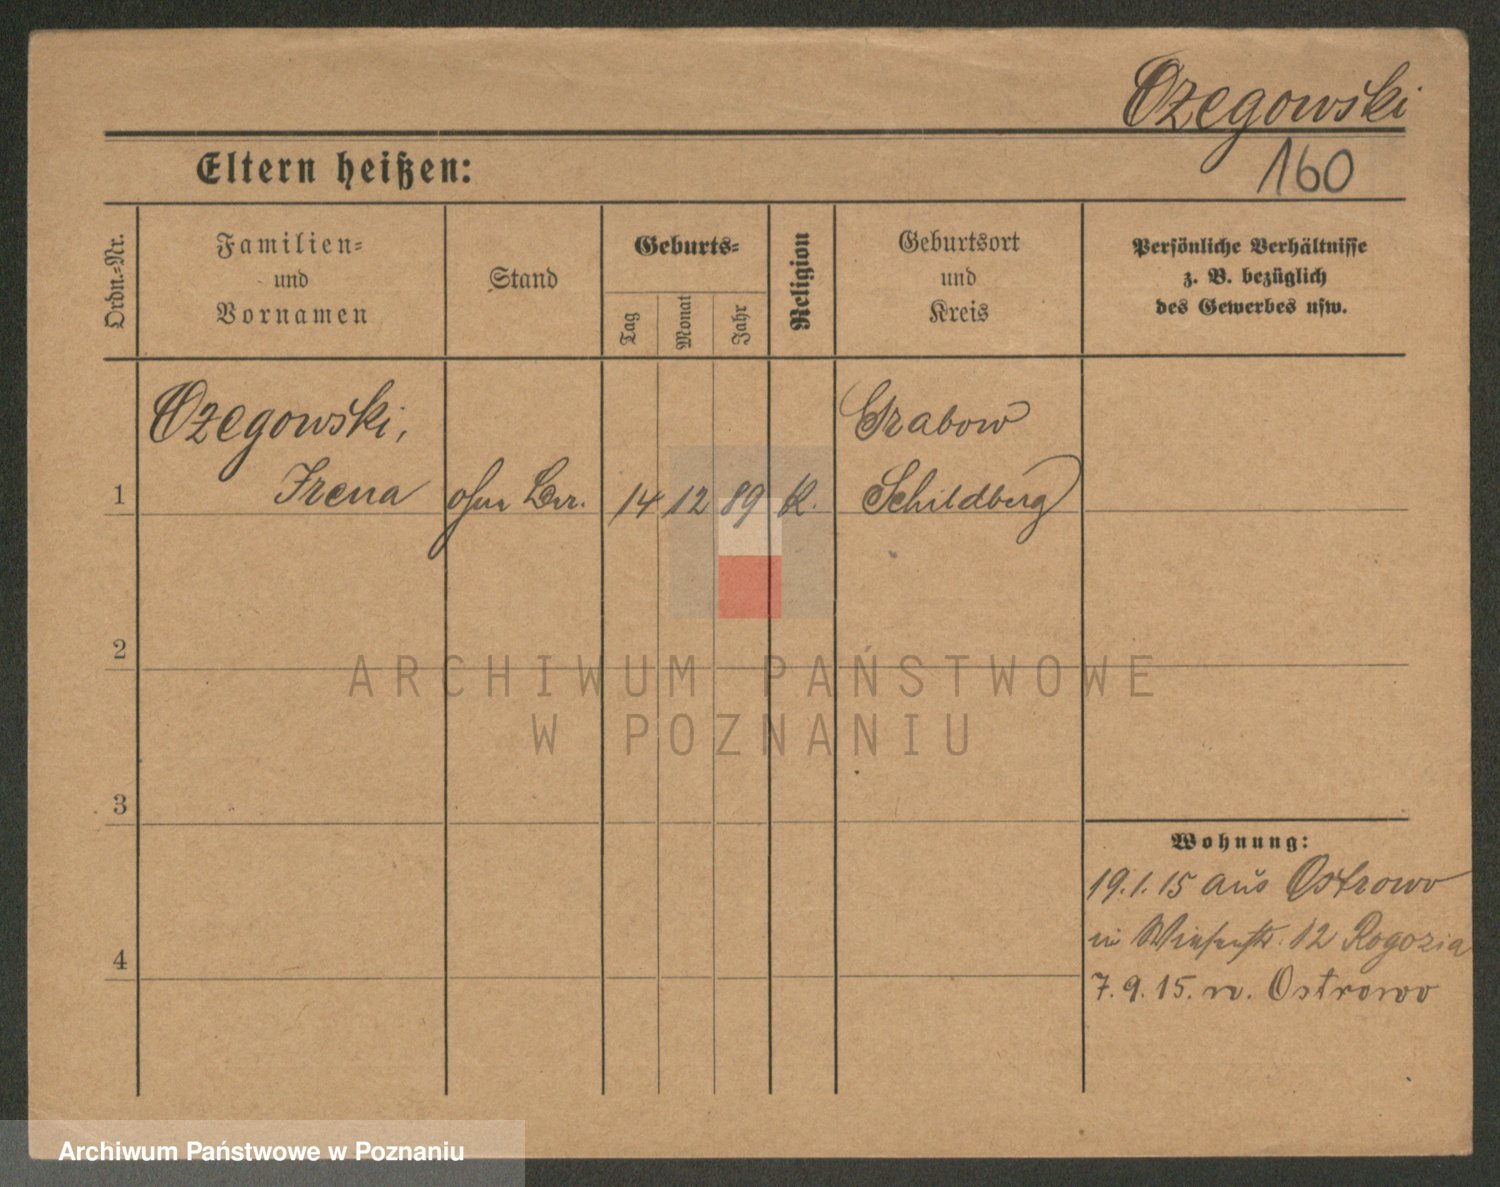 Ozegowski
160
Eltern heißen:
Ordn.-Nr.
Familien-
und
Vornamen
Stand
Geburts-
Tag
Monat
Jahr
Religion
Geburtsort
und
Kreis
Persönliche Verhältnisse
z. B. bezüglich
des Gewerbes usw.
Ozegowski,
Irena
1
ohne Ber.
14 12 89 K.
Grabow
Schildberg
2
3
4
Wohnung:
19.1.15 aus Ostrowo
in Wiesenstr. 12 Rogozia
7.9.15. n. Ostrowo
ARCHIWUM PAŃSTWOWE
W POZNANIU
Archiwum Państwowe w Poznaniu